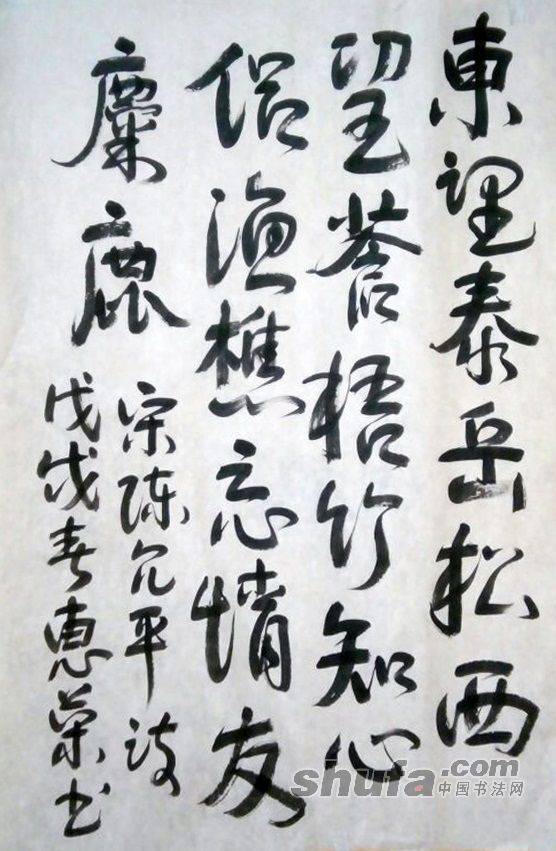 東望泰岳松西
望蒼梧竹知心
侣渔樵忘情友
麋鹿
宋陈允平诗
戊戌春惠荣书
shufa.com
中国书法网